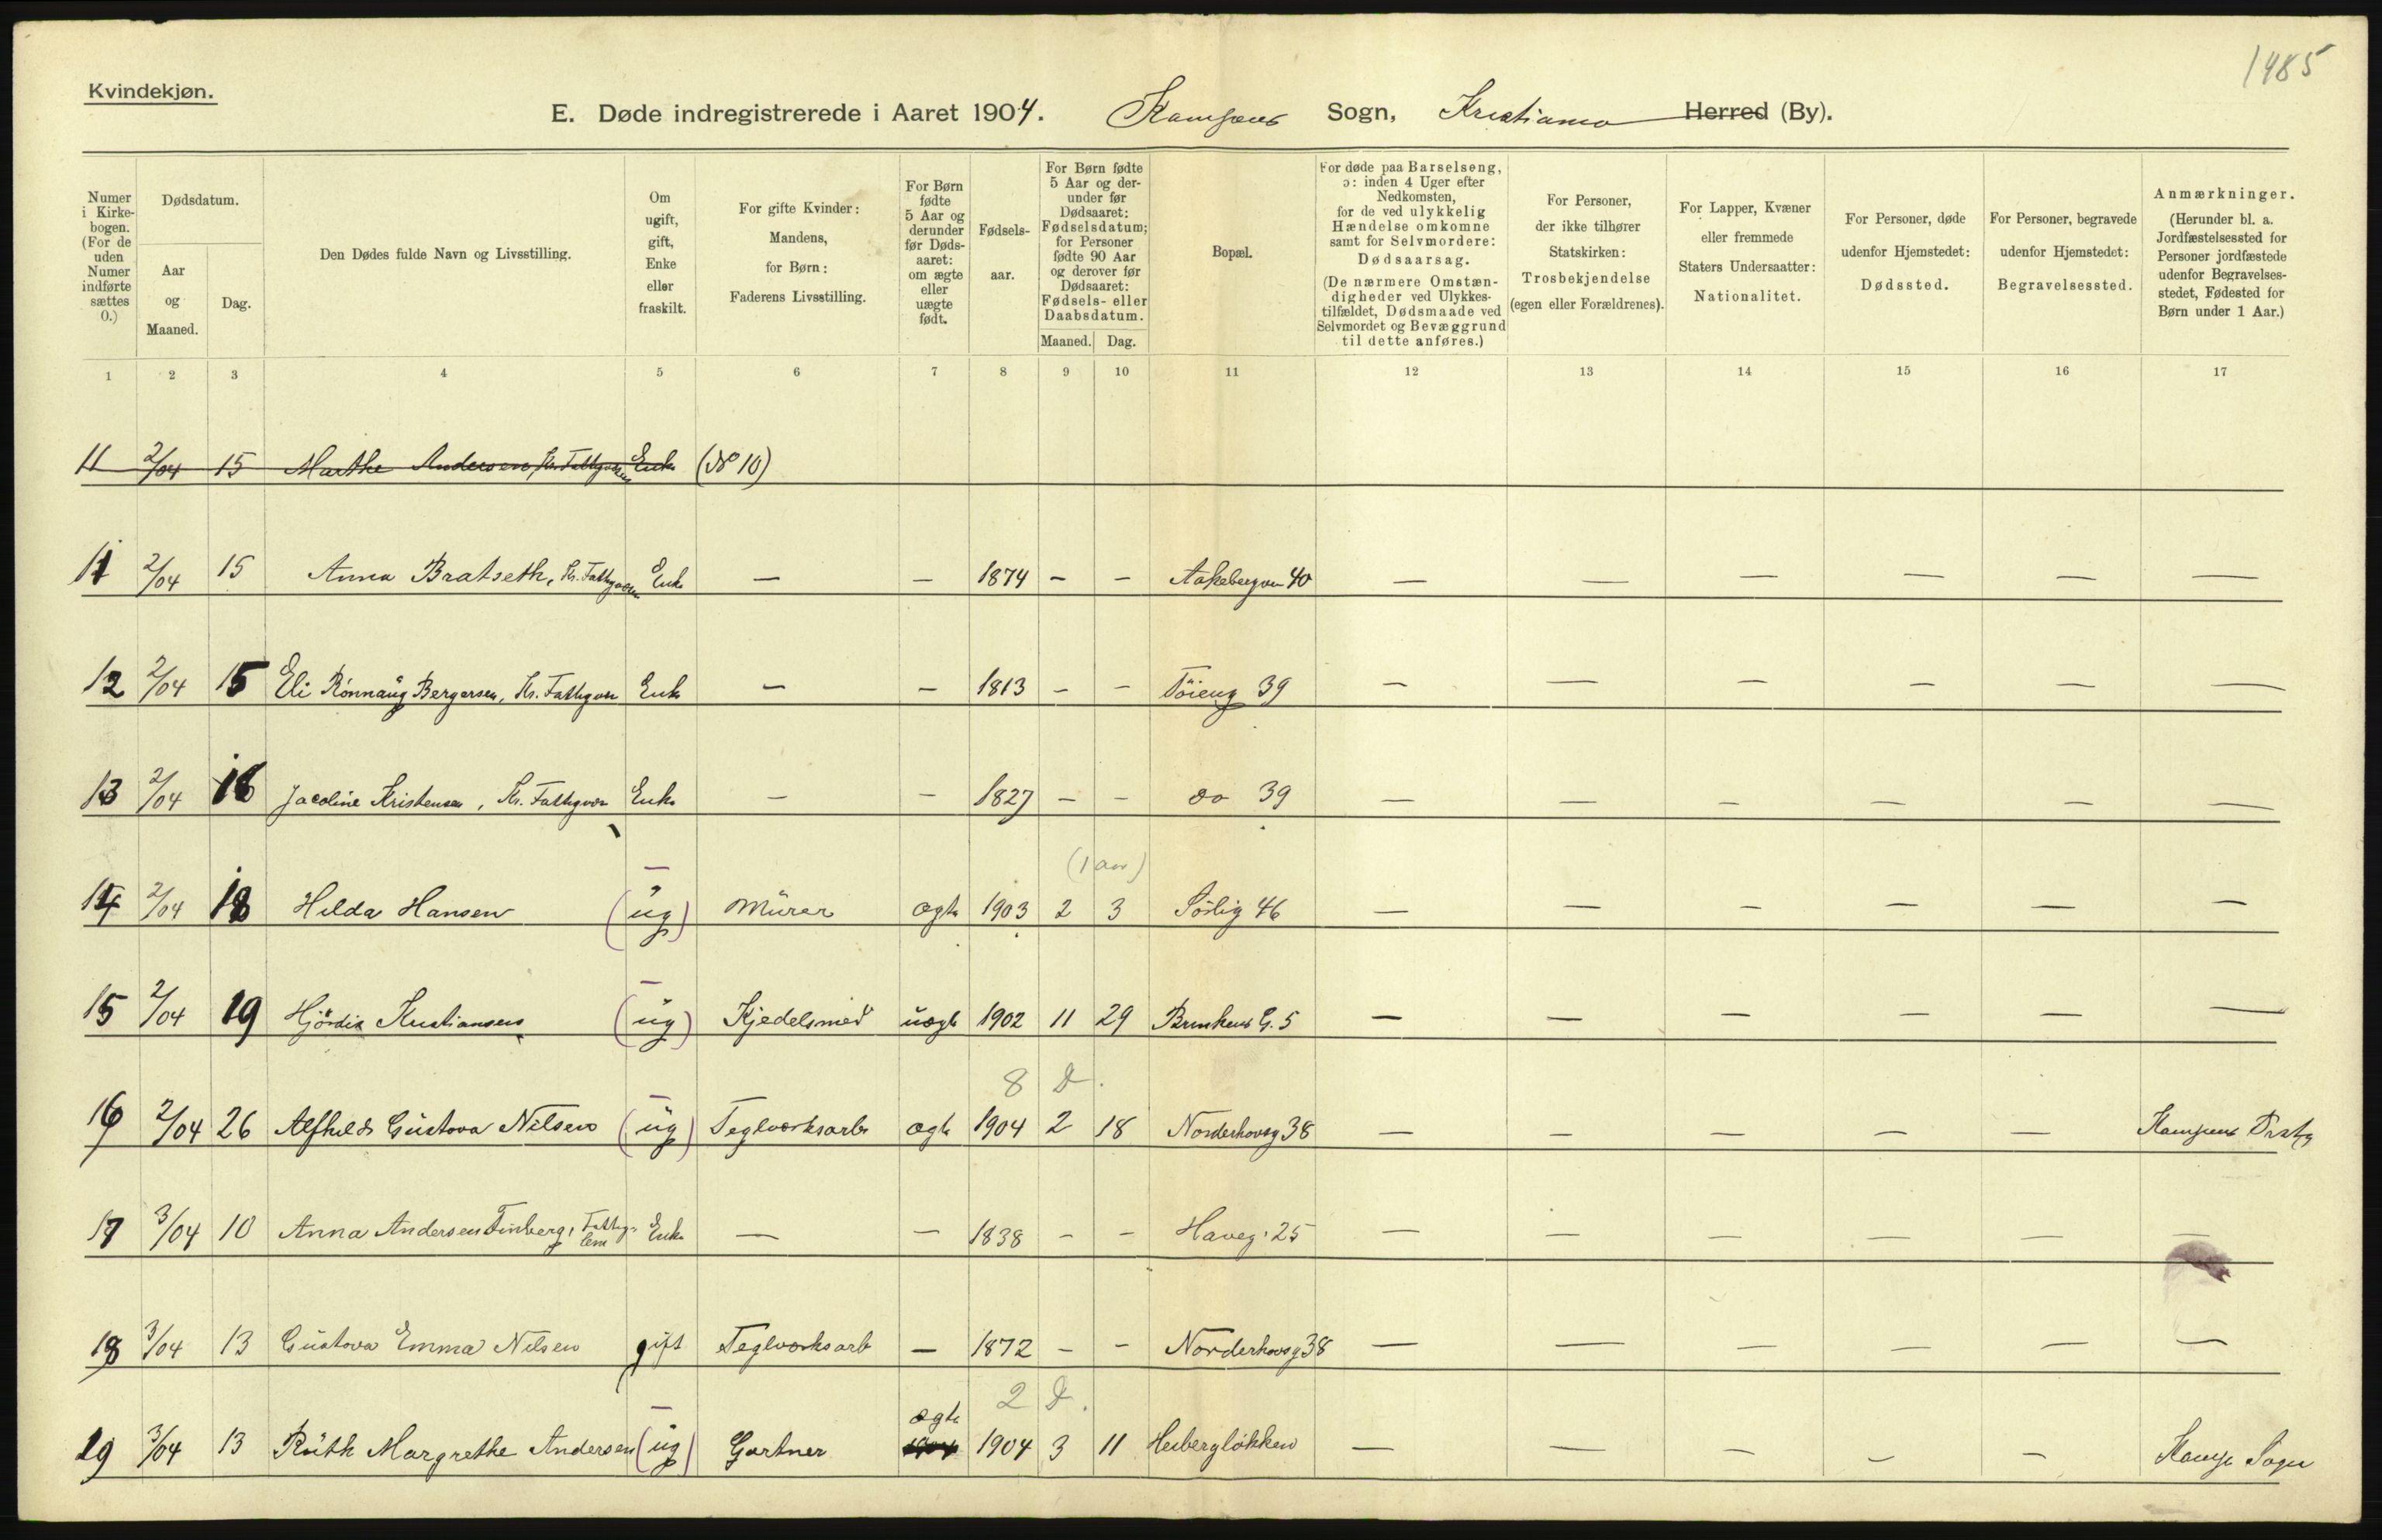 1485
Kvindekjøn.
E. Døde indregistrerede i Aaret 1904. Kampens Sogn, Kristiania Herred (By).
Numer i Kirkebogen. (For de uden Numer indførte sættes 0.)
Dødsdatum.
Aar og Maaned.
Dag.
Den Dødes fulde Navn og Livsstilling.
Om ugift, gift, Enke eller fraskilt.
For gifte Kvinder: Mandens, for Børn: Faderens Livsstilling.
For Børn fødte 5 Aar og derunder før Dødsaaret: om ægte eller uægte født.
Fødselsaar.
For Børn fødte 5 Aar og derunder før Dødsaaret: Fødselsdatum; for Personer fødte 90 Aar og derover før Dødsaaret: Fødsels- eller Daabsdatum.
Maaned. Dag.
Bopæl.
For døde paa Barselseng, ɔ: inden 4 Uger efter Nedkomsten, for de ved ulykkelig Hændelse omkomne samt for Selvmordere: Dødsaarsag. (De nærmere Omstændigheder ved Ulykkestilfældet, Dødsmaade ved Selvmordet og Bevæggrund til dette anføres.)
For Personer, der ikke tilhører Statskirken: Trosbekjendelse (egen eller Forældrenes).
For Lapper, Kvæner eller fremmede Staters Undersaatter: Nationalitet.
For Personer, døde udenfor Hjemstedet: Dødssted.
For Personer, begravede udenfor Hjemstedet: Begravelsessted.
Anmærkninger. (Herunder bl. a. Jordfæstelsessted for Personer jordfæstede udenfor Begravelsesstedet, Fødested for Børn under 1 Aar.)
1 2 3 4 5 6 7 8 9 10 11 12 13 14 15 16 17
11 2/04 15 Marthe Andersen, Enke (No 10)
11 2/04 15 Anna Bratseth, Enke — — 1874 - - Aakebergvn 40 — — — — — —
12 2/04 15 Eli Rönnaug Bergersen, Enke — — 1813 - - Töieng 39 — — — — — —
13 2/04 16 Jacoline Kristensen, Enke — — 1827 - - do 39 — — — — — —
(1 aar)
14 2/04 18 Hilda Hansen (ug) Murer ægte 1903 2 3 Sörlig 46 — — — — — —
15 2/04 19 Hjördis Kristiansen (ug) Kjedelsmed uægte 1902 11 29 G. 5 — — — — — —
8 D.
16 2/04 26 Alfhild Gustava Nilsen (ug) Teglværksarb ægte 1904 2 18 Norderhovsg 38 — — — — — Kampens
17 3/04 10 Anna Andersen Finberg, Fattiglem Enke — — 1838 - - Haveg. 25 — — — — — —
18 3/04 13 Gustava Emma Nilsen gift Teglværksarb — 1872 - - Norderhovsg 38 — — — — — —
2 D.
19 3/04 13 Ruth Margrethe Andersen (ug) Gartner ægte 1904 3 11 Heibergløkken — — — — — Kamp. Sogn